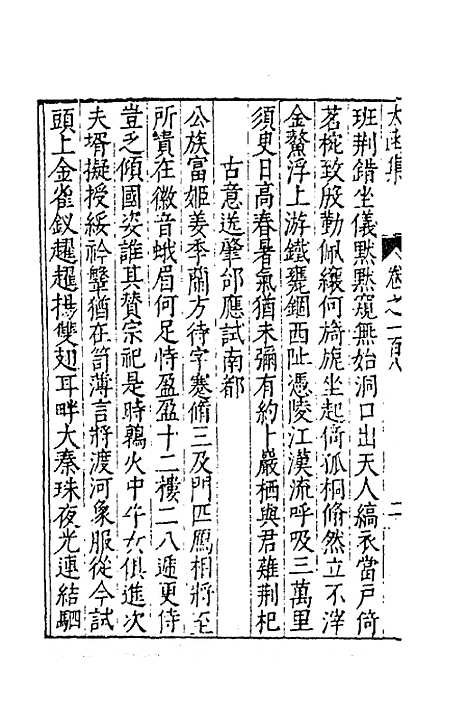 太函集 卷之一百八 二
班荆錯坐儀黙黙窺無始洞口出天人縞衣當戶倚
茗椀致殷勤佩纕何旖旎坐起倚孤桐翛然立不滓
金鰲浮上游鐵甕錮西阯憑陵江漢流呼吸三萬里
須臾日高舂暑氣猶未彌有約上嚴栖與君薙荆杞
古意送肇郃應試南都
公族富姬姜季蘭方待字蹇脩三及門匹鴈相將至
所貴在徽音蛾眉何足恃盈盈十二樓二八遞更侍
豈乏傾國姿誰其贊宗祀是時鶉火中午女俱進次
夫壻擬授綏衿鞶猶在笥薄言將渡河象服從今試
頭上金雀釵趯趯揚雙翅耳畔大秦珠夜光連結駟